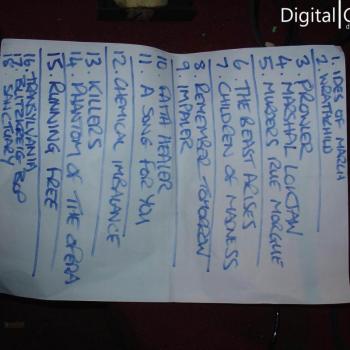 Digital
1. IDES OF MARCH
2 WRATHCHILD
3. PROWLER
4. MARSHAL LOKJAN
5. MURDERS RUE MORGUE
6. THE BEAST ARISES
7. CHILDREN OF MADNESS
8 REMEMBER TOMORROW
9. IMPALER
10 FAITH HEALER
11 A SONG FOR YOU
12. CHEMICAL IMBALANCE
13. KILLERS
14. PHANTOM OF THE OPERA
15. RUNNING FREE
16. TRANSYLVANIA
17. BLITZKRIEG BOP
18 SANCTUARY